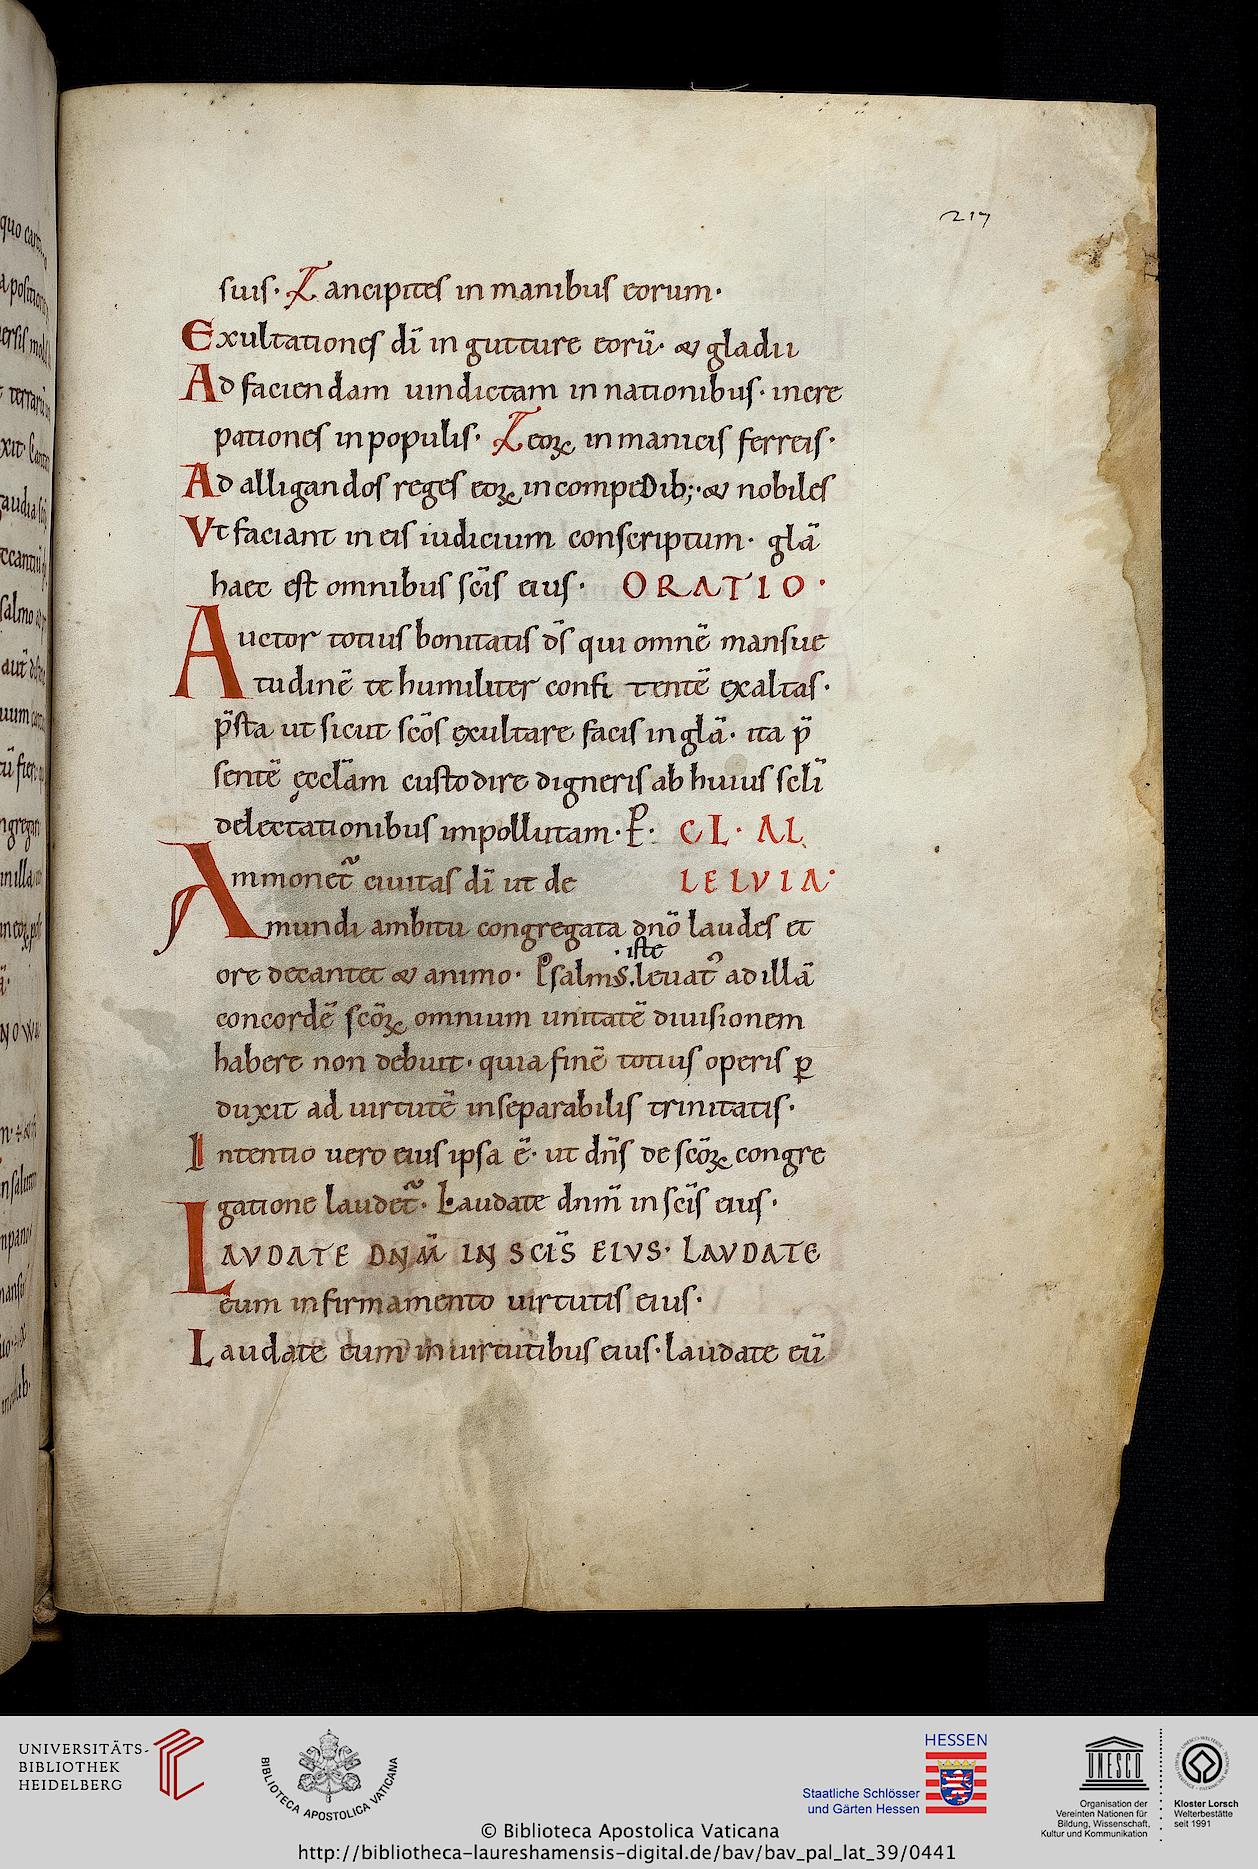 217
suis· ancipites in manibus eorum·
Exultationes dī in gutture eorū· & gladii
Ad faciendam uindictam in nationibus· incre
pationes in populis· eoꝝ in manicis ferreis·
Ad alligandos reges eoꝝ in compedib;·& nobiles
Vt faciant in eis iudicium conscriptum· glā
haec est omnibus scīs eius· ORATIO·
Auctor totius bonitatis ds̄ qui omnē mansue
tudinē te humiliter confitentē exaltas·
p̄sta ut sicut scōs ęxultare facis in glā· ita p̄
sentē ęcclām custodire digneris ab huius scli̅
delectationibus impollutam· P· CL· AL
Ammonet᷑ ciuitas dī ut de LELVIA·
mundi ambitu congregata dnō laudes et
·iste
ore decantet & animo· PsalmS. leuat᷑ ad illā
concordē scōꝝ omnium unitatē diuisionem
habere non debuit· quia finē totius operis ꝑ
duxit ad uirtutē inseparabilis trinitatis·
Intentio uero eius ipsa ē· ut dn̄s de scōꝝ congre
gatione laudet᷑· Laudate dnm̄ in scīs eius·
LAVDATE DNM̄ IN SCIS̄ EIVS· LAVDATE
eum in firmamento uirtutis eius·
Laudate eum in uirtutibus eius· laudate eū
UNIVERSITÄTS-
BIBLIOTHEK
HEIDELBERG
BIBLIOTECA APOSTOLICA VATICANA
HESSEN
Staatliche Schlösser
und Gärten Hessen
UNESCO
Organisation der
Vereinten Nationen für
Bildung, Wissenschaft,
Kultur und Kommunikation
Kloster Lorsch
Welterbestätte
seit 1991
© Biblioteca Apostolica Vaticana
http://bibliotheca-laureshamensis-digital.de/bav/bav_pal_lat_39/0441